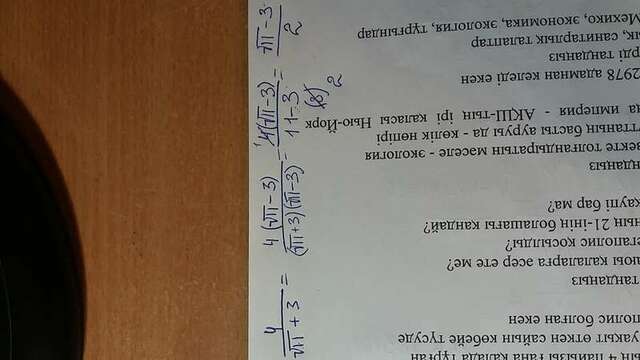 4/(√11 + 3) = 4(√11 - 3)/((√11+3)(√11-3)) = 4(√11-3)/(11-3) = (√11-3)/2
(8) 2
4 пайызы ғана қалада тұрған
уақыт өткен сайын көбейе түсуде
полис болған екен
таңдаңыз
ауы қалаларға әсер ете ме?
егаполис қосылды?
ның 21-інің болашағы қандай?
қаупі бар ма?
ңдаңыз
зекте толғандыратын мәселе - экология
ттанның басты ауруы да - көлік көпірі
да империя - АҚШ-тың ірі қаласы Нью-Йорк
2978 адамнан келеді екен
ерді таңдаңыз
ық, санитарлық талаптар
Мехико, экономика, экология, тұрғындар